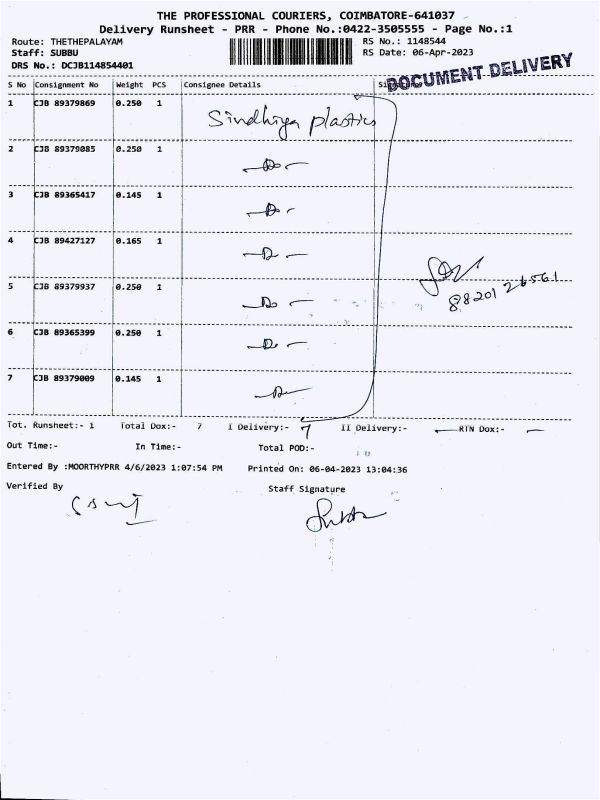 THE PROFESSIONAL COURIERS, COIMBATORE-641037
Delivery Runsheet - PRR - Phone No.:0422-3505555 - Page No.:1
Route: THETHEPALAYAM RS No.: 1148544
Staff: SUBBU RS Date: 06-Apr-2023
DRS No.: DCJB114854401
DOCUMENT DELIVERY
S No Consignment No Weight PCS Consignee Details
1 CJB 89379869 0.250 1 Sindhiya plastics
2 CJB 89379085 0.250 1 -Do-
3 CJB 89365417 0.145 1 -Do-
4 CJB 89427127 0.165 1 -Do-
5 CJB 89379937 0.250 1 -Do-
88201 26561
6 CJB 89365399 0.250 1 -Do-
7 CJB 89379009 0.145 1 -Do-
Tot. Runsheet:- 1 Total Dox:- 7 I Delivery:- 7 II Delivery:- — RTN Dox:- —
Out Time:- In Time:- Total POD:-
Entered By :MOORTHYPRR 4/6/2023 1:07:54 PM Printed On: 06-04-2023 13:04:36
Verified By Staff Signature